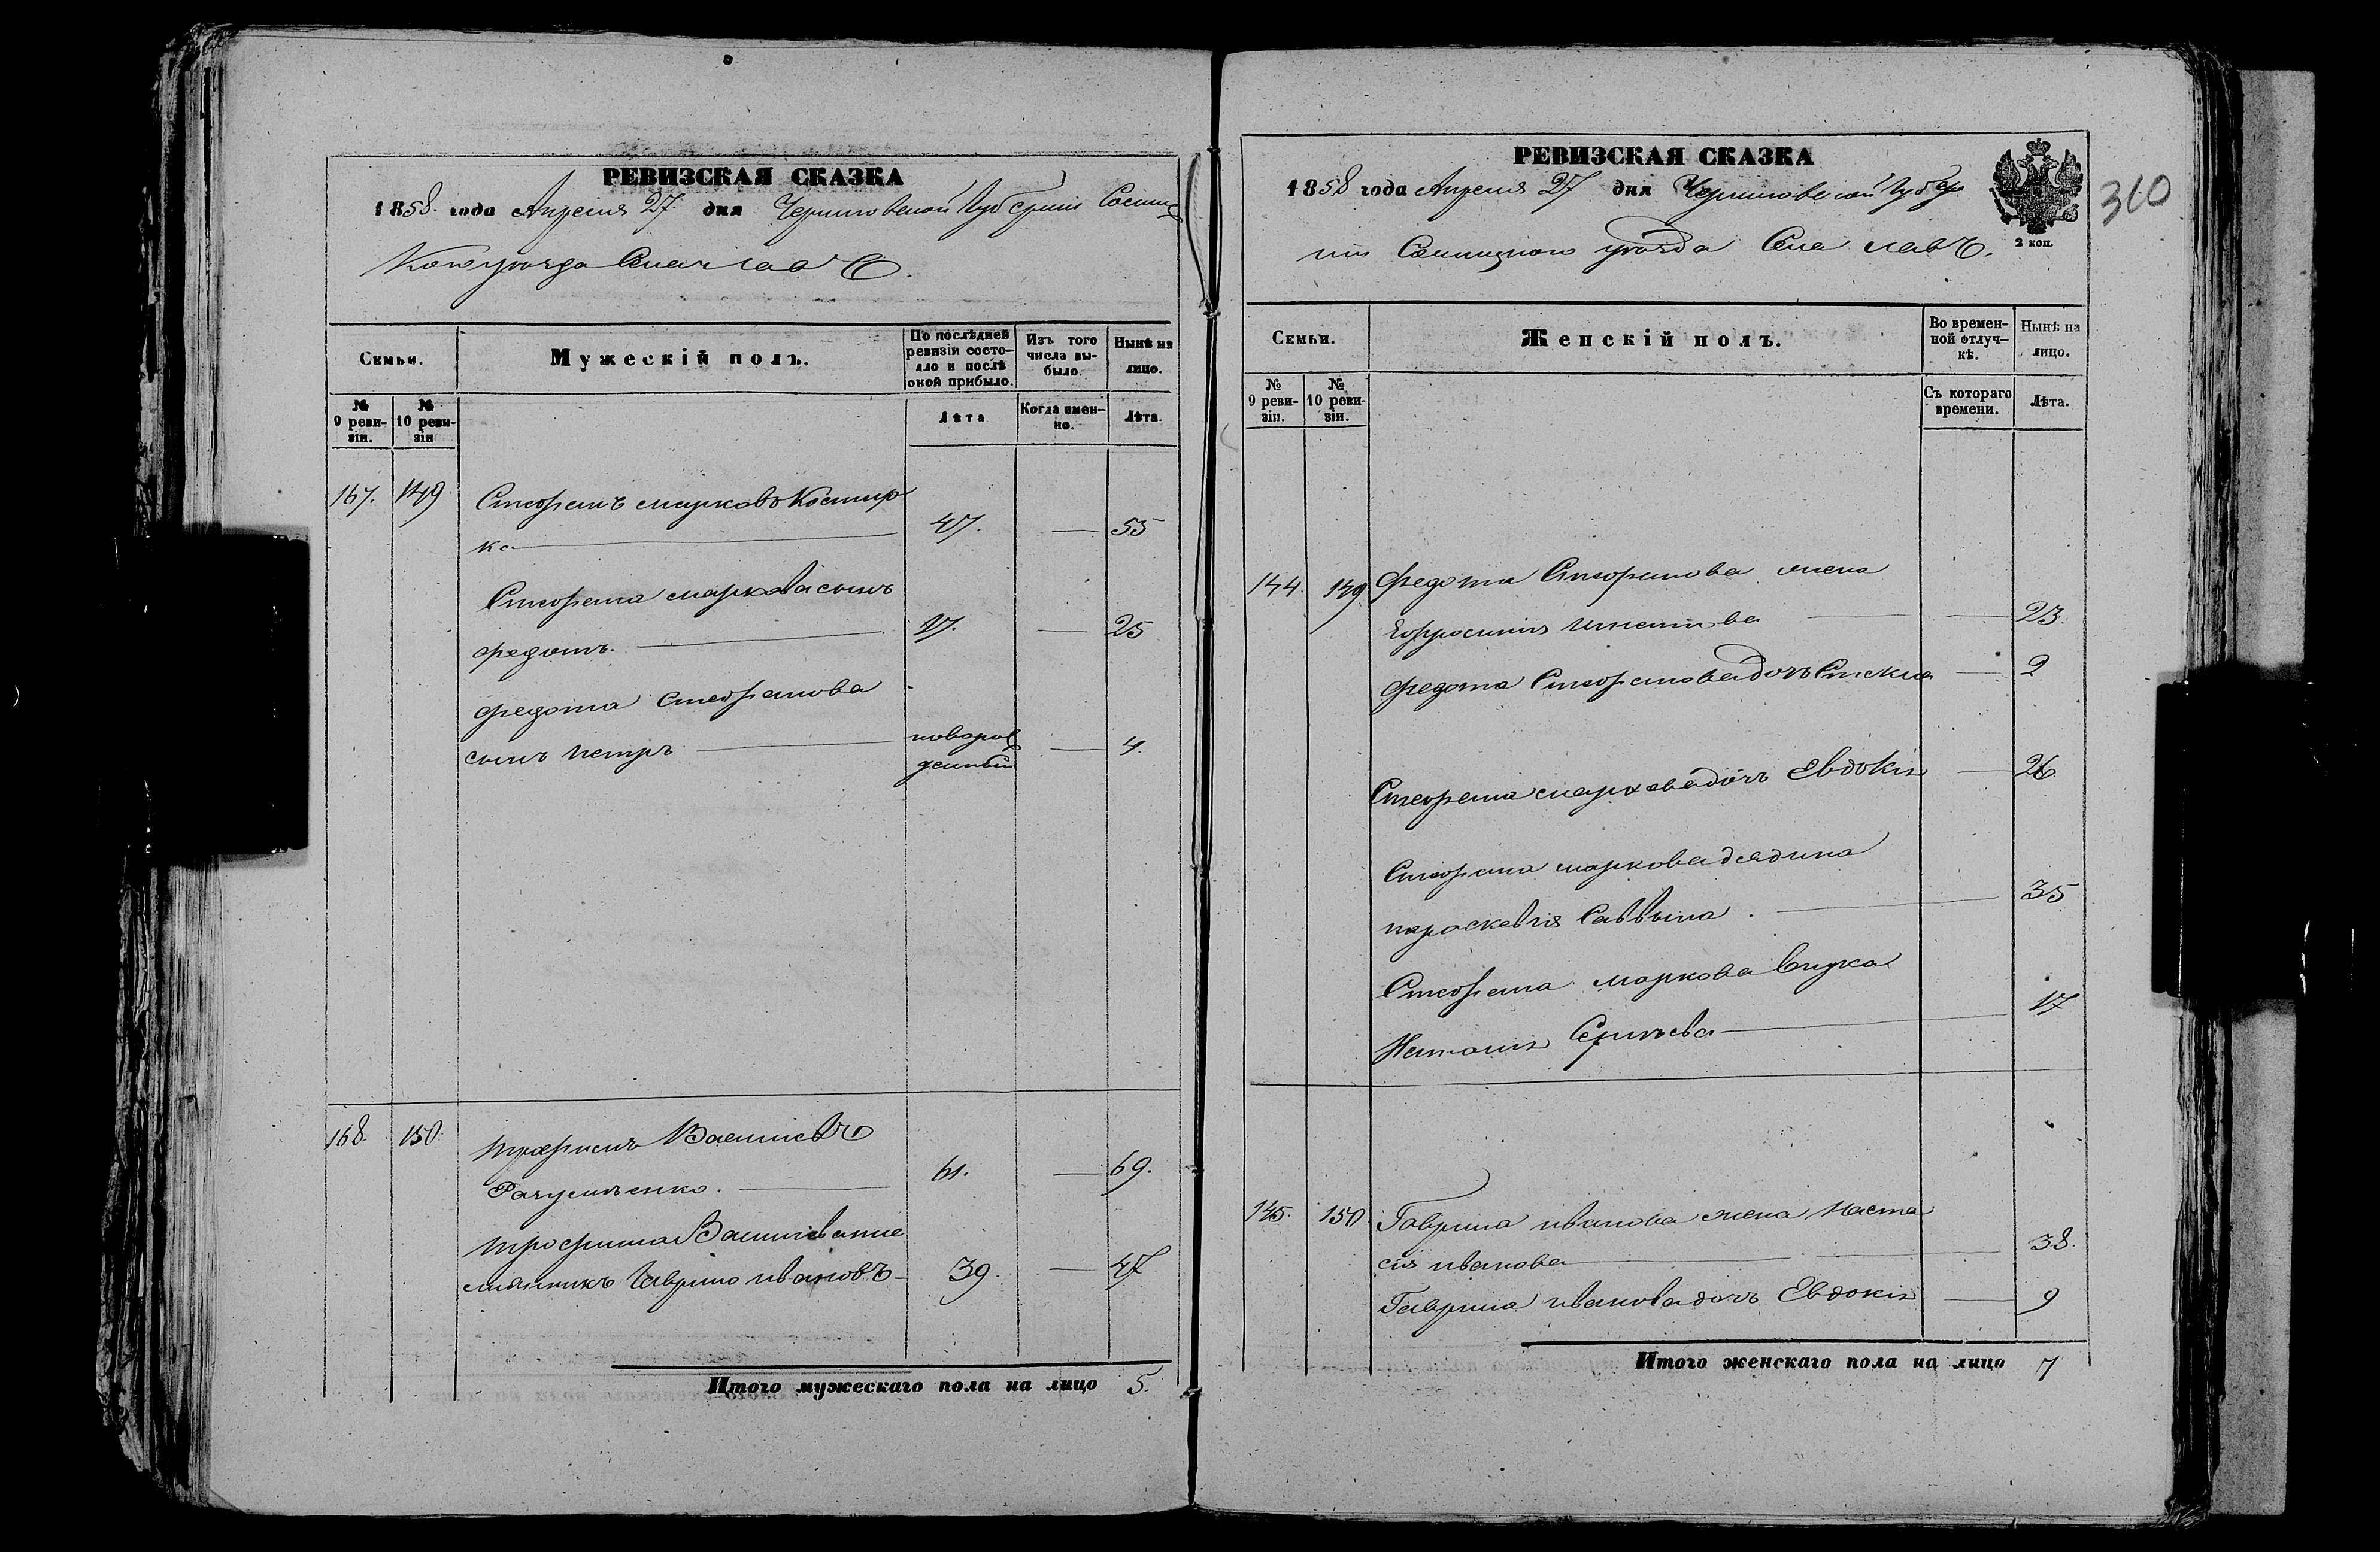 РЕВИЗСКАЯ СКАЗКА
1858. года Апреля 27. дня Черниговской Губернии Сосниц
каго уезда Села Лавъ.
Семьи.
Мужескій полъ.
По послѣдней ревизіи состо-яло и послѣ оной прибыло.
Изъ того числа вы-было.
Нынѣ на лицо.
№ 9 реви-зіи.
№ 10 реви-зіи
Лѣта
Когда имен-но.
Лѣта.
167. 149 Стефанъ Марковъ Костыр
ка 47. 55
Стефана Маркова сынъ
Федотъ. 17. 25
Федота Стефанова
сынъ Петръ новорож
денный 4.
168. 150. Трофимъ Василіевъ
61. 69.
Трофима Василіева пле
мянникъ Гаврило Ивановъ 39. 47
Итого мужескаго пола на лицо 5.
РЕВИЗСКАЯ СКАЗКА
1858 года Апреля 27 дня Черниговской Губер
ніи Сосницкого уезда Села Лавъ.
2 коп.
310
Семьи.
Женскій полъ.
Во времен-ной отлуч-кѣ.
Нынѣ на лицо.
№ 9 реви-зіи.
№ 10 реви-зіи.
Съ котораго времени.
Лѣта.
144. 149 Федота Стефанова жена
Ефросинія 23.
Федота Стефанова дочь 2
Стефана Маркова дочь Евдокія 26
Стефана Маркова дядина
Параскевія Саввина. 35
Стефана Маркова внука
Наталія Сергѣева 17
145. 150. Гаврила Иванова жена Наста
сія Иванова 38.
Гаврила Иванова дочь Евдокія 9
Итого женскаго пола на лицо 7